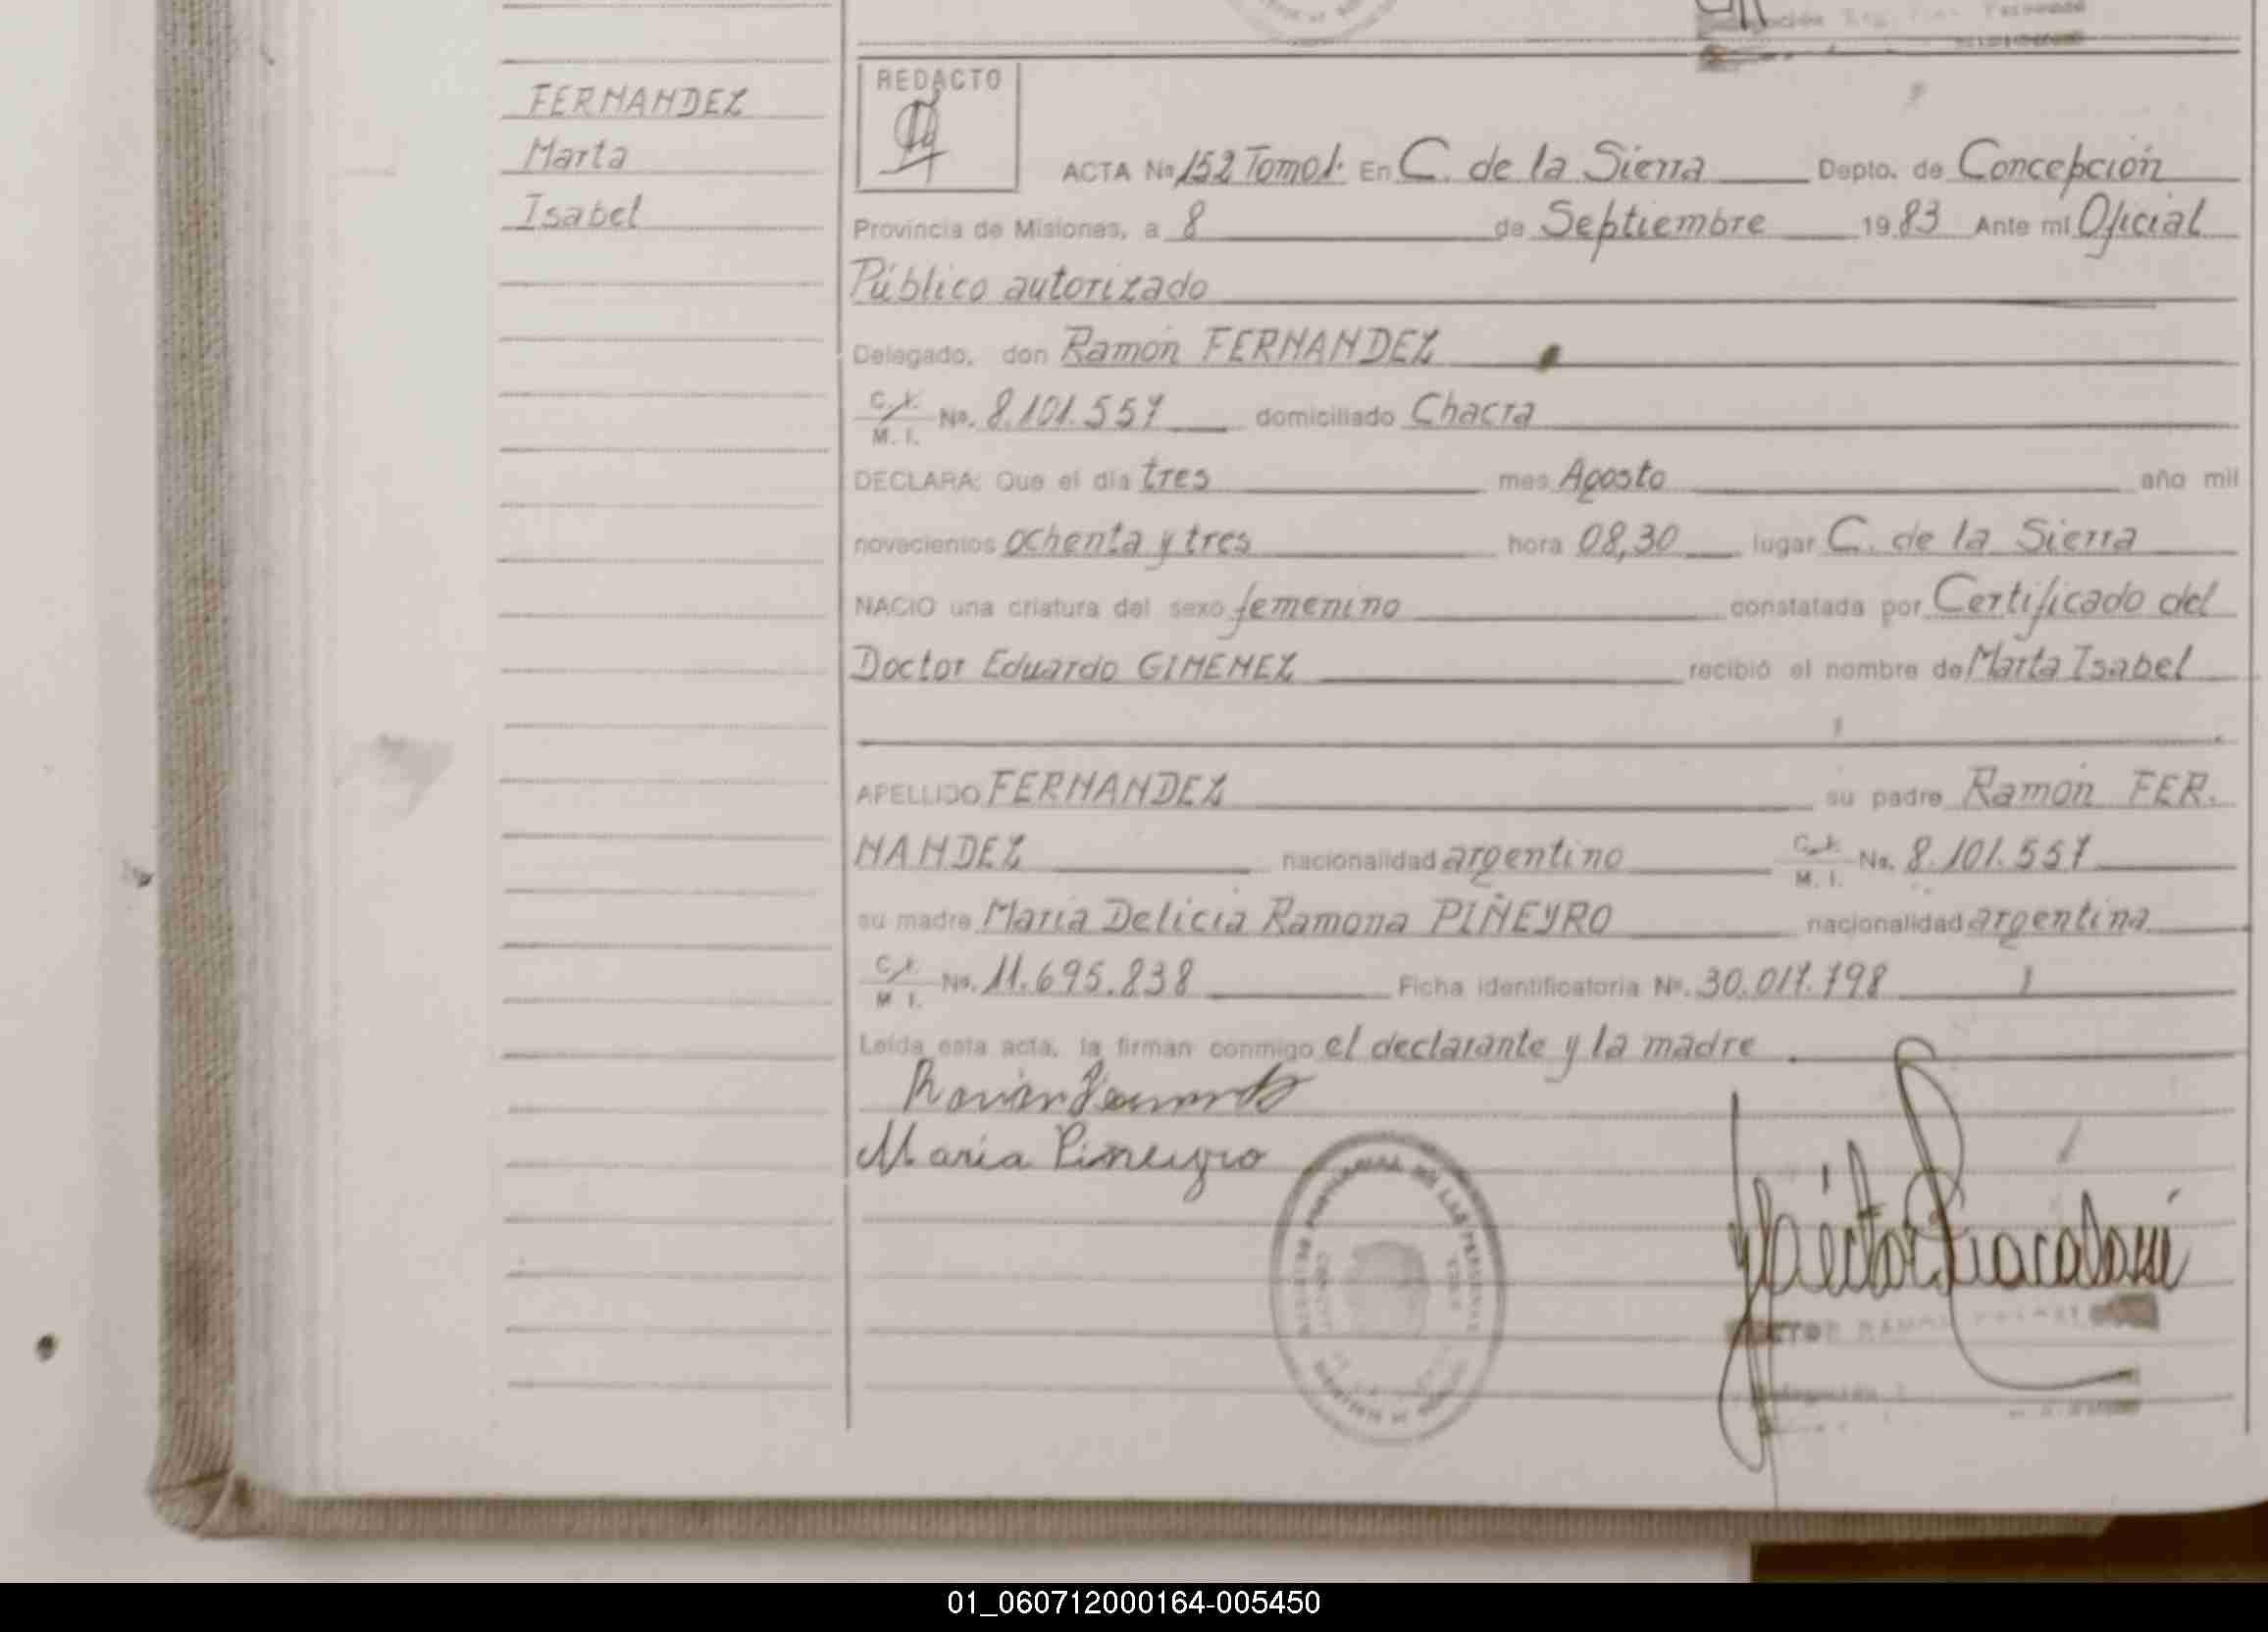 FERNANDEZ
Marta
Isabel
REDACTO
ACTA Nº 152 Tomo I. En C. de la Sierra Depto. de Concepción
Provincia de Misiones, a 8 de Septiembre 1983 Ante mí Oficial
Público autorizado
Delegado, don Ramón FERNANDEZ
C. I. / M. I. No. 8.101.557 domiciliado Chacra
DECLARA: Que el día tres mes Agosto año mil
novecientos ochenta y tres hora 08,30 lugar C. de la Sierra
NACIO una criatura del sexo femenino constatada por Certificado del
Doctor Eduardo GIMENEZ recibió el nombre de Marta Isabel
APELLIDO FERNANDEZ su padre Ramón FER.
NANDEZ nacionalidad argentino C. I. / M. I. No. 8.101.557
su madre María Delicia Ramona PIÑEYRO nacionalidad argentina
C. I. / M. I. No. 11.695.838 Ficha identificatoria Nº. 30.017.798
Leída esta acta, la firman conmigo el declarante y la madre
Ramon Fernandez
María Pineyro
01_060712000164-005450